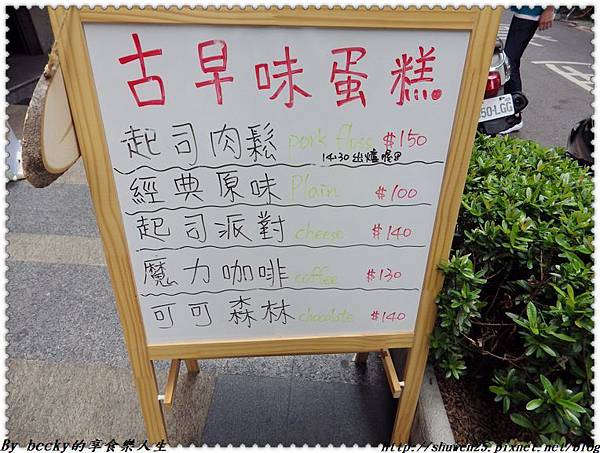 古早味蛋糕
起司肉鬆 pork floss $150
14:30出爐喔!!
經典原味 Plain $100
起司派對 cheese $140
魔力咖啡 coffee $130
可可森林 chocolate $140
50-LGG
By bccky的享食樂人生
http://shuwen25.pixnet.net/blog